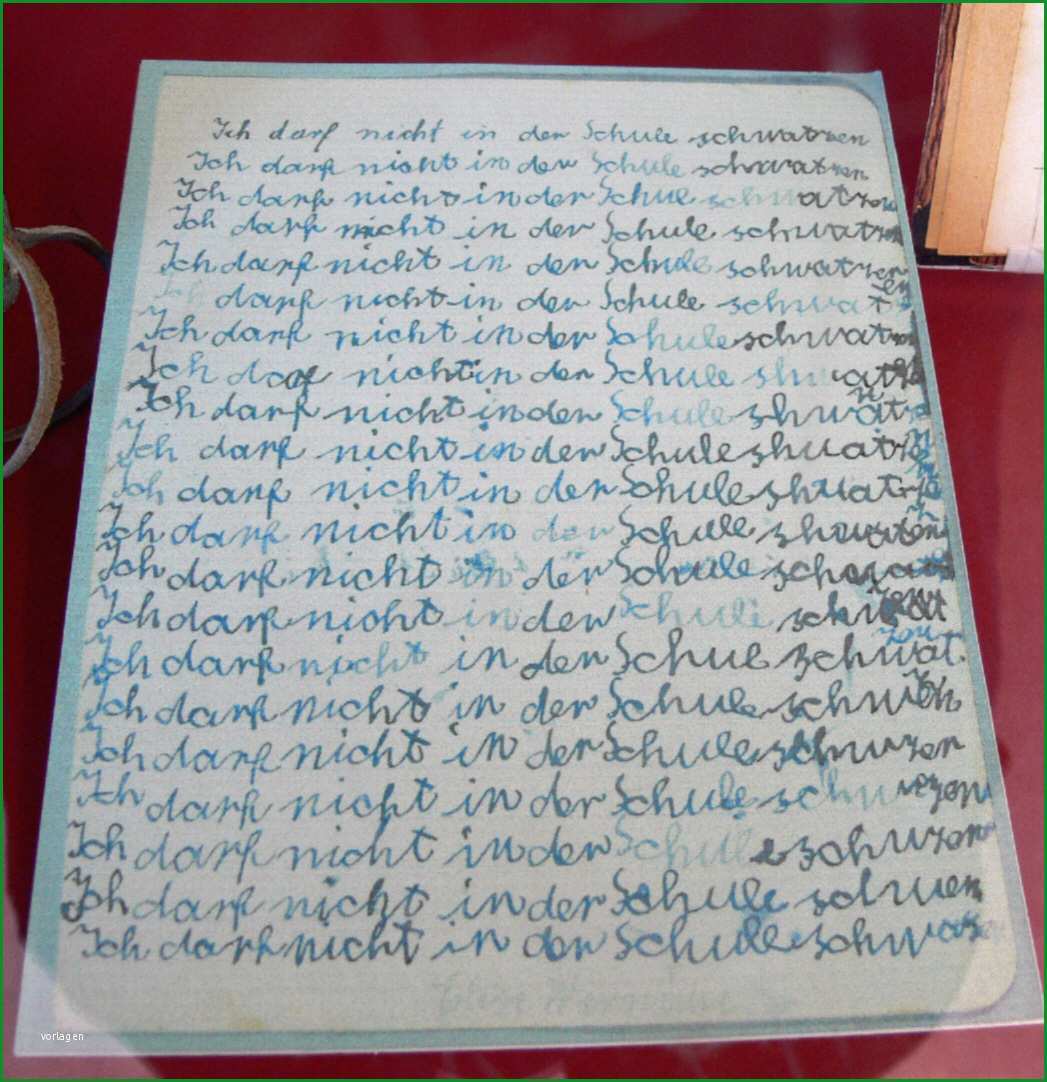 Ich darf nicht in der Schule schwatzen
Ich darf nicht in der Schule schwatzen
Ich darf nicht in der Schule schwatzen
Ich darf nicht in der Schule schwatzen
Ich darf nicht in der Schule schwatzen
Ich darf nicht in der Schule schwatzen
Ich darf nicht in der Schule schwatzen
Ich darf nicht in der Schule
Ich darf nicht in der Schule
Ich darf nicht in der Schule
Ich darf nicht in der Schule
Ich darf nicht in der Schule
Ich darf nicht in der Schule
Ich darf nicht in der Schule
Ich darf nicht in der Schule
Ich darf nicht in der Schule
Ich darf nicht in der Schule schwzen
Ich darf nicht in der Schule
Ich darf nicht in der Schule schwzen
Ich darf nicht in der Schule
Ich darf nicht in der Schule
vorlagen